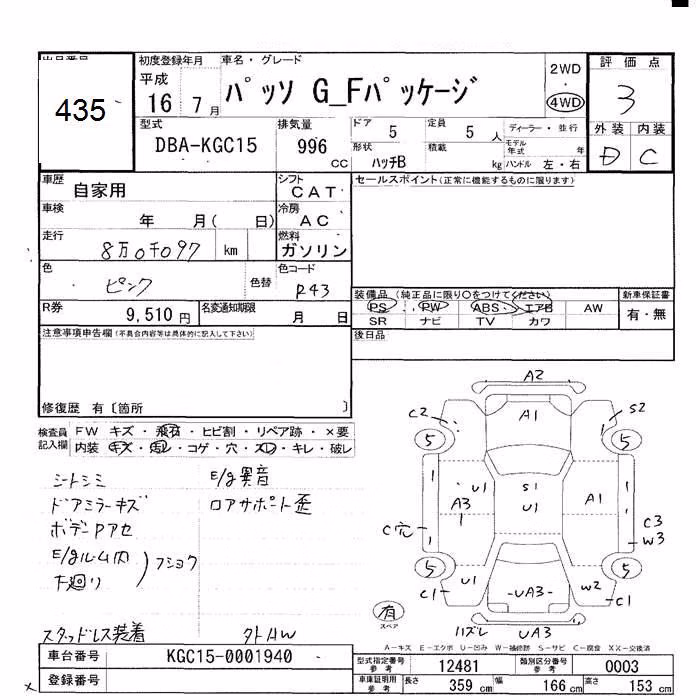 出品番号
435
初度登録年月
平成
16 7月
車名・グレード
パッソ G_Fパッケージ
2WD
4WD
評価点
3
外装 内装
D C
型式
DBA-KGC15
排気量
996 CC
ドア 5
定員 5 人
ディーラー・並行
形状 ハッチB
積載 kg
モデル年式 年
ハンドル 左・右
車歴
自家用
シフト
CAT
セールスポイント(正常に機能するものに限ります)
車検
年 月( 日)
冷房
AC
走行
8万0千097 km
燃料
ガソリン
色
ピンク
色替
色コード
R43
R券
9,510 円
名変通知期限
月 日
装備品(純正品に限り○をつけてください)
PS PW ABS エアB AW
SR ナビ TV カワ
新車保証書
有・無
注意事項申告欄(不具合内容等は具体的に記入して下さい)
後日品
修復歴 有〔箇所 〕
検査員記入欄
FW キズ・飛石・ヒビ割・リペア跡・×要
内装 キズ・汚レ・コゲ・穴・スレ・キレ・破レ
シートシミ
ドアミラーキズ
ボデーPアセ
E/gルーム内
下廻り
フショク
E/g異音
ロアサポート歪
スタッドレス装着
外AW
A2
C2
A1
S2
5
5
U1
S1
A3
U1
A1
C穴
C3
W3
5
5
U1
W2
C1
UA3
C1
有
スペア
ハズレ
UA3
A-キズ E-エクボ U-凹み W-補修跡 S-サビ C-腐食 XX-交換済
車台番号
KGC15-0001940
登録番号
型式指定番号
参考
12481
類別区分番号
参考
0003
車庫証明用
参考
長さ 359 cm
幅 166 cm
高さ 153 cm